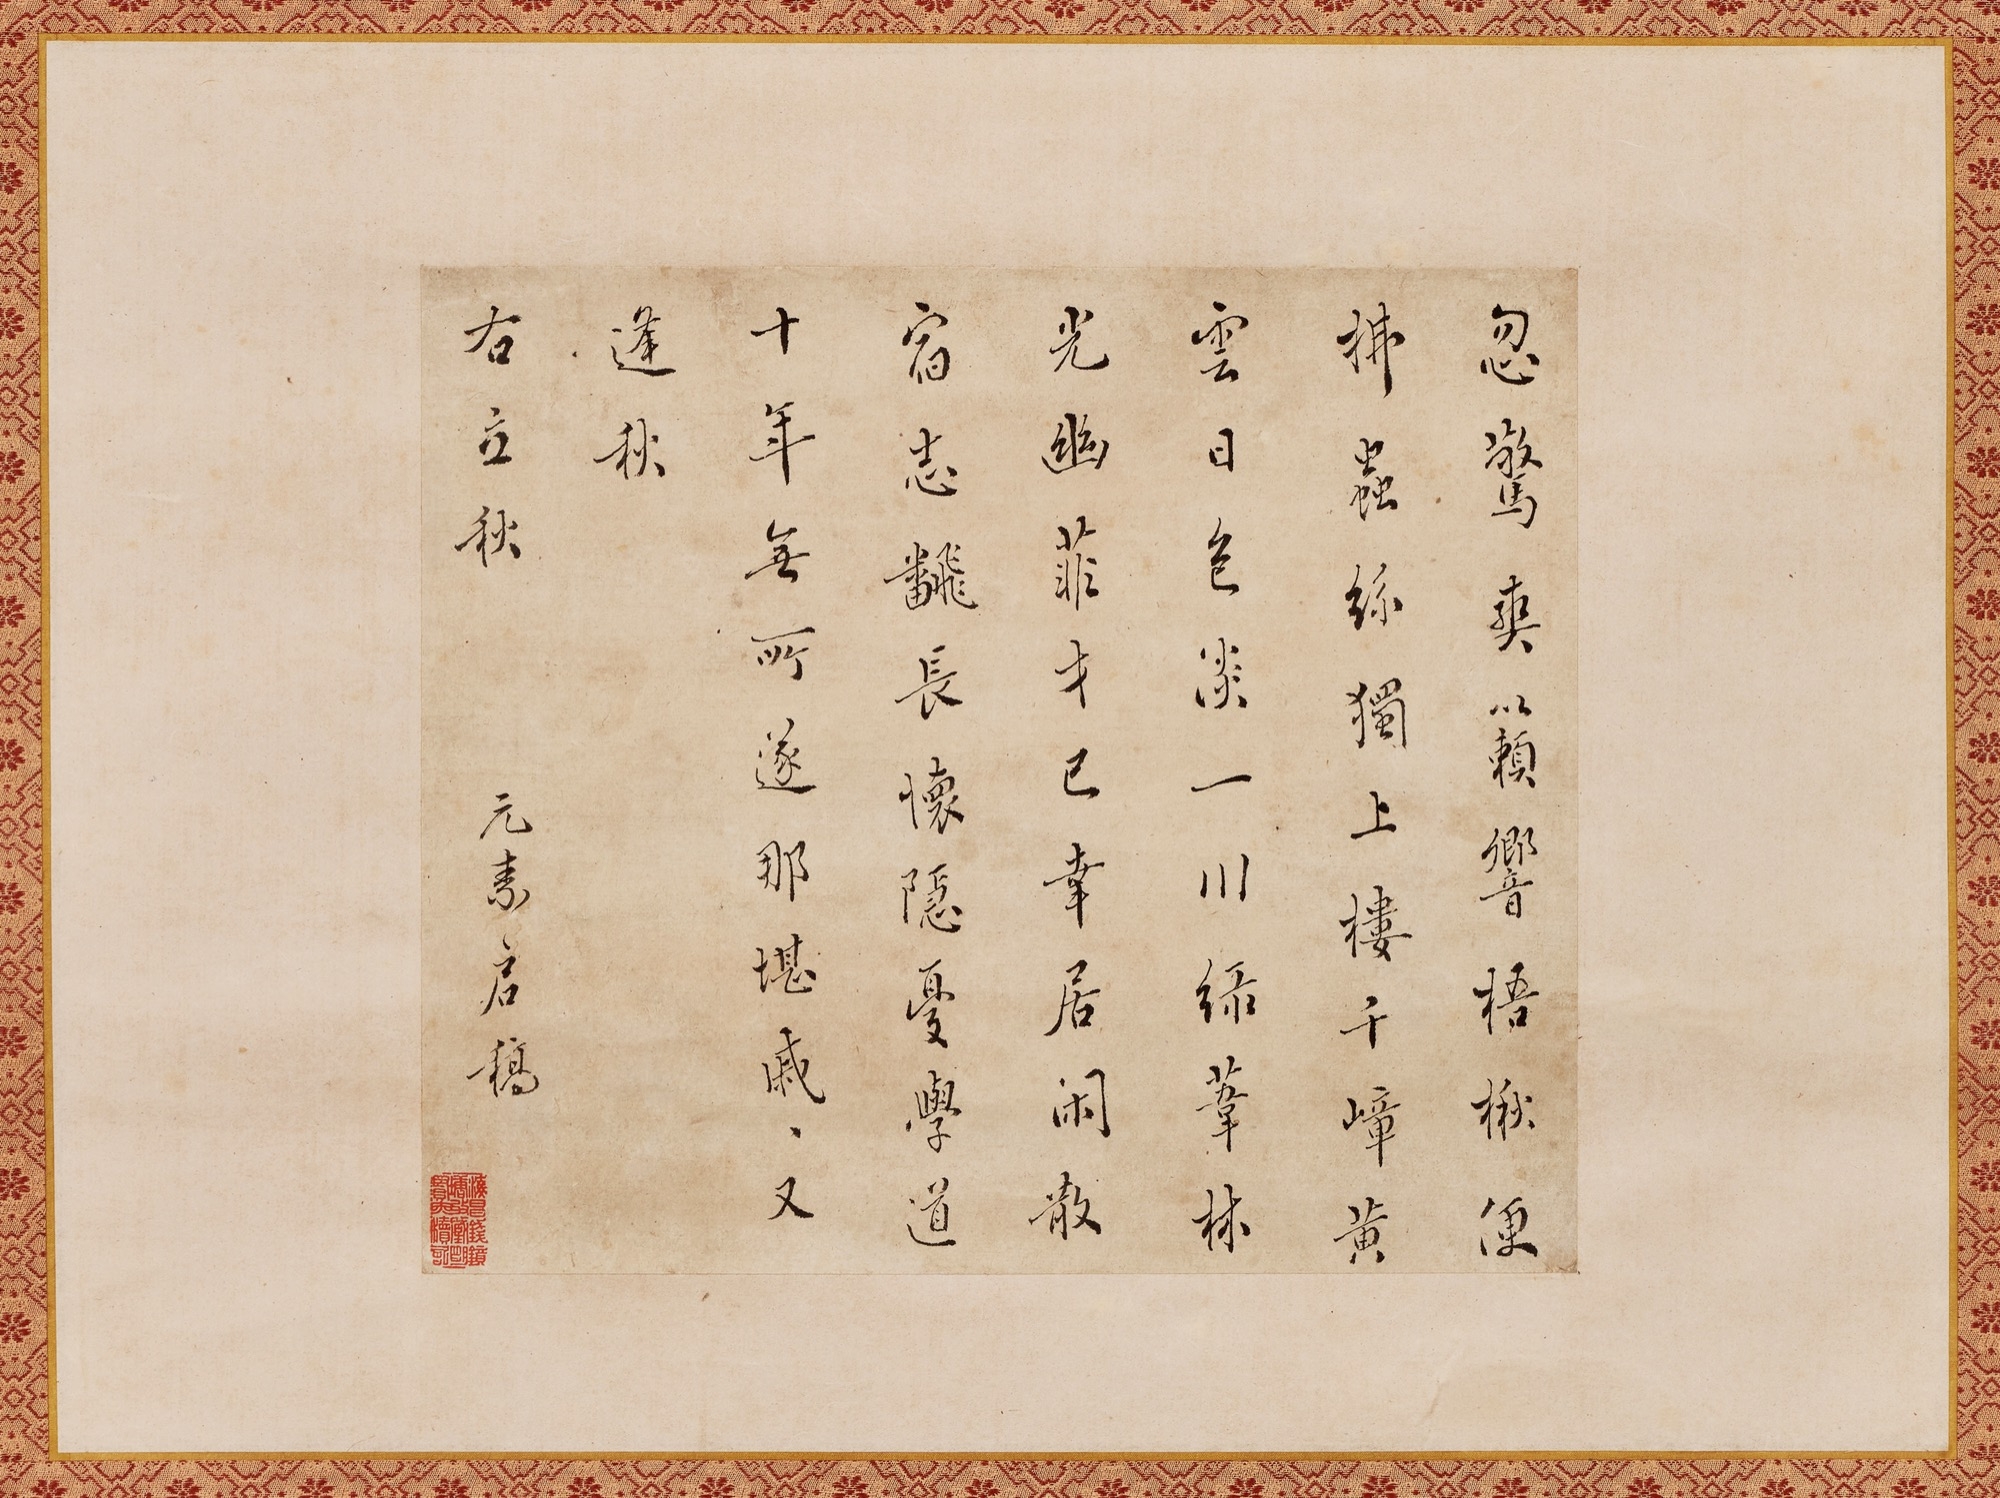 忽驚爽籟響梧楸便
拂蟲絲獨上樓千嶂黃
雲日色淡一川綠葦秣
光幽菲才已幸居閑散
宿志飜長懷隱憂學道
十年無所遂那堪戚、又
逢秋
右立秋
元素启稿